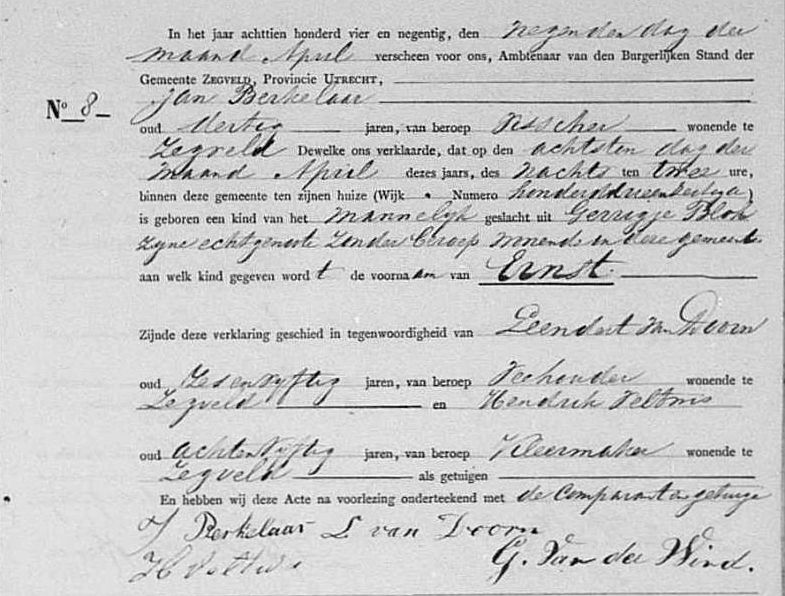 In het jaar achttien honderd vier en negentig, den negenden dag der
maand April verscheen voor ons, Ambtenaar van den Burgerlijken Stand der
Gemeente ZEGVELD, Provincie UTRECHT,
Jan Berkelaar
No 8
oud dertig jaren, van beroep Visscher wonende te
Zegveld Dewelke ons verklaarde, dat op den achtsten dag der
maand April dezes jaars, des nachts ten twee ure,
binnen deze gemeente ten zijnen huize (Wijk Numero honderddrieendertig)
is geboren een kind van het mannelyk geslacht uit Gerrigje Blok
zyne echtgenoote zonder beroep wonende in deze gemeente
aan welk kind gegeven wordt de voornaam van Ernst.
Zijnde deze verklaring geschied in tegenwoordigheid van Leendert van Doorn
oud zesenvyftig jaren, van beroep Veehouder wonende te
Zegveld en Hendrik Veltuis
oud achtenvyftig jaren, van beroep Kleermaker wonende te
Zegveld als getuigen
En hebben wij deze Acte na voorlezing onderteekend met de Comparant en getuige
J Berkelaar L van Doorn
H Veltuis G. van der Wind.